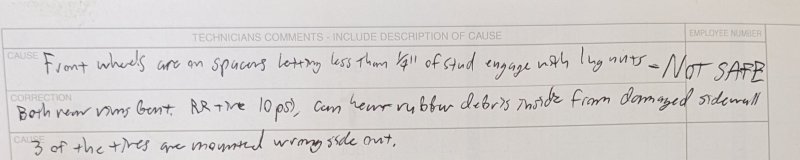 TECHNICIANS COMMENTS - INCLUDE DESCRIPTION OF CAUSE EMPLOYEE NUMBER
CAUSE Front wheels are on spacers letting less than 1/4" of stud engage with lug nuts - NOT SAFE
CORRECTION
Both rear rims bent. RR tire 10 psi, can hear rubber debris inside from damaged sidewall
CAUSE 3 of the tires are mounted wrong side out.